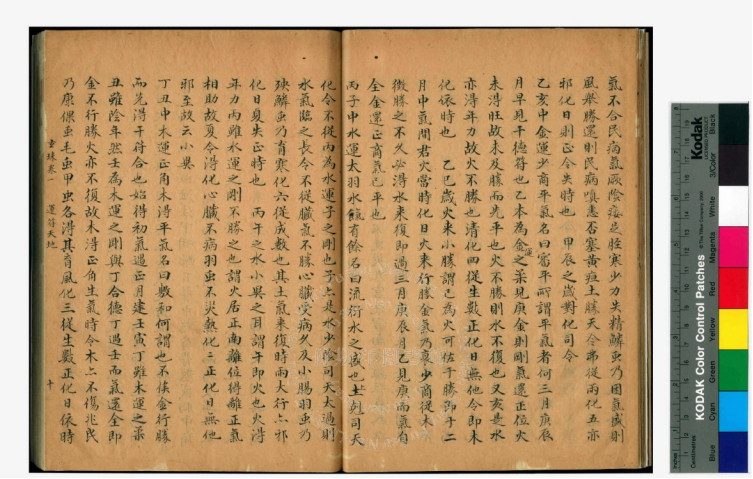 氣不合民病氣厥陰痿足脛寒少力失精鱗虫乃困氣盛則
風舉勝還則民病嗔恚否塞黄疸土勝天令弗從兩化五亦
邪化日則正令失時也 甲辰之歲對化司令
乙亥中金運少商平氣名曰審平所謂平氣者何三月庚辰
月早見干德符也乙本為金之柔見庚金則剛氣還正位火
未得旺故未及勝而先平也火不勝則水不復也又亥是水
亦得年力故火不勝也清化四從生數正化日無他令即未
化依時也 乙巳歲火來小勝謂巳為火可佐于勝即于二
月中氣間君火當時化日火來行勝金氣乃衰少商從木
微勝之不久必得水來復即過三月庚辰月乙見庚而氣自
全金還正商氣乙平也
丙子中水運太羽水饒有餘名曰流衍水之盛也土剋司天
化令不從丙為水運子之剛也子亦是水少陰司天太過則
水氣臨之長令不從臟氣不勝心臟受病久及小腸羽虫乃
殃鱗虫乃育寒化六從成數也其土氣來復時雨大行亦邪
化日及失正時也 丙午之水小異之耳謂午即火也火得
年力丙雖水運之剛不勝之也謂火居正南離位得離正氣
相助故及令得化心臟不病羽虫不災熱化二正化日無他
邪至故云小異
丁丑中木運正角木得平氣名曰敷和何謂也不俟金行勝
而先得干符合也始得初氣過正月建壬寅丁雖木運之柔
丑雖陰年然壬為木運之剛與丁合德丁過壬而氣還全即
金不行勝火亦不復故木得正角生氣時令木亦不傷兆民
乃康倮虫毛虫甲虫各得其育風化三從生數正化日依時
玄珠卷一 運符天地
十
Kodak
KODAK Color Control Patches
Inches
Centimetres
Blue
Cyan
Green
Yellow
Red
Magenta
White
3/Color
Black